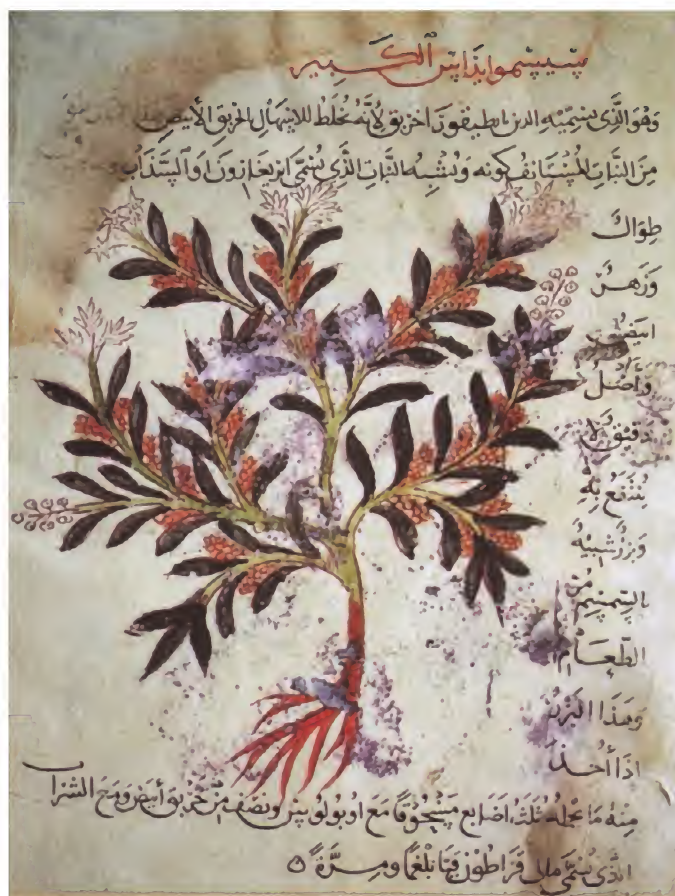 سيسمويداس الكبير
وهو الذي يسميه الذين بانطيقون اخربق لأنه يخلط للاسهال الخربق الأبيض
من النبات المستأنف كونه ويشبه النبات الذي يسمى ايريغارون او السذاب
طوال
وزهر
ابيض
وأصل
دقيق لا
ينتفع به
وبزر شبيه
بالسمسم من
الطعام
وهذا البزر
اذا أخذ
منه ما تحمله ثلث اصابع مسحوقا مع اوبولوس ونصف من خربق أبيض ومع الشراب
الذي يسمى مالي قراطون قيا بلغما ومرة ه